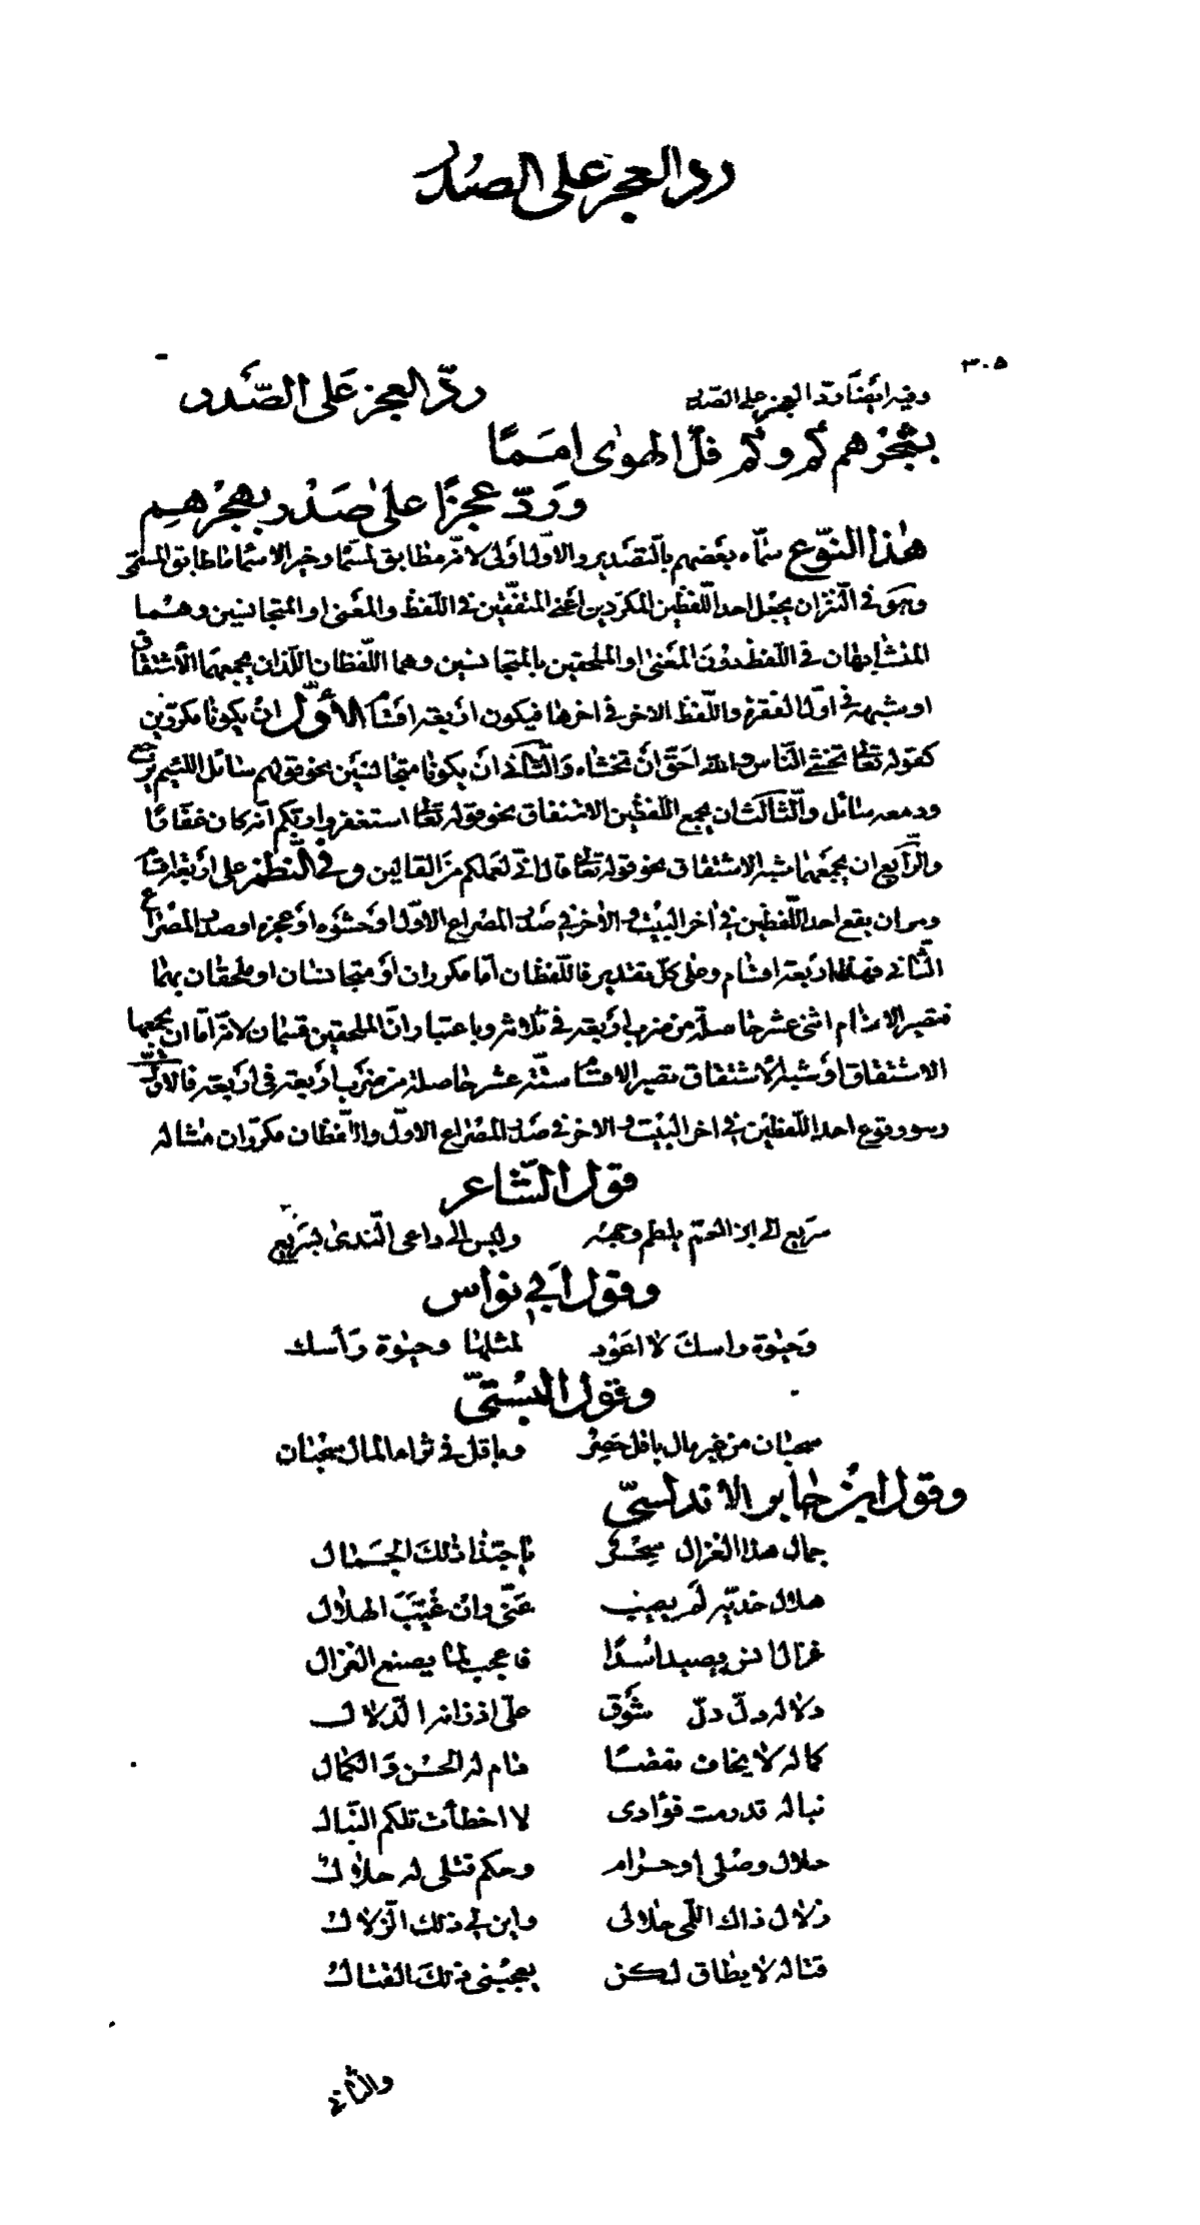 رد العجز على الصدر
٣٠٥
وفيه ايضا رد العجز على الصدر
ردّ العجز عَلى الصّدر
بفجرهم كم وكم فلّ الهوى امَمًا
ورَدّ عجزًا على صَدْر بهجرهِم
هٰذا النوّع سمّاه بعضهم بالتصدير والاوّل اَولى لانّه مطابق لمسمّاه وخير الاسماء ما طابق المسمّى
وهو في النثر ان يجعل احد اللّفظين المكرّرين اعني المتّفقين في اللّفظ والمعنى او المتجانسين وهما
المتشابهان في اللّفظ دون المعنى او الملحقين بالمتجانسين وهما اللّفظان اللّذان يجمعهما الأشتقاق
او شبهه في اوّل الفقرة واللّفظ الاخر في اخرها فيكون اربعة اقسام الأوّل ان يكونا مكرّرين
كقوله تعالى تخشى النّاس والله احقّ أن تخشاه والثّاني ان يكونا متجانسين نحو قولهم سائل اللئيم يرجع
ودمعه سائل والثّالث ان يجمع اللّفظين الاشتقاق نحو قوله تعالى استغفروا ربّكم انّه كان غفّارًا
والرّابع ان يجمعهما شبه الاشتقاق نحو قوله تعالى قال انّي لعملكم من القالين وفي النّظم على اربعة اقسام
وهو ان يقع احد اللّفظين في اخر البيت والاخر في صدر المصراع الاوّل او حشوه او عجزه او صدر المصراع
الثّاني فهذه اربعة اقسام وعلى كلّ تقدير فاللّفظان امّا مكرران أو متجانسان او ملحقان بهما
فتصير الاقسام اثنى عشر حاصلة من ضرب اربعة في ثلاثة وباعتبار انّ الملحقين قسمان لانّه امّا ان يجمعهما
الاشتقاق أو شبه الأشتقاق تصير الاقسام ستّة عشر حاصلة من ضرب اربعة في اربعة فالاوّل
وهو وقوع احد اللّفظين في اخر البيت والاخر في صدر المصراع الاوّل واللّفظان مكرّران مثاله
قول الشّاعر
سَريع الى ابن العمّ يلطم وجهه وليس الى داعى النّدى بسَريع
وقول ابي نواس
وَحيٰوة راسك لا اعود لمثلها وحيٰوة رَأسك
وقول البُستيّ
سحبان من غير مال باقل حصِر وباقل في ثراء المال سحبان
وقول ابن جابر الأندلسيّ
جمال هذا الغزال سِحْر يا حبّذا ذلك الجَمال
هلال خدّيه لم يغيب عنّي وان غُيّبَ الهلال
غزال انس يصيد اسدًا فاعجب لما يصنع الغزال
دلاله دلّ دلّ شَوق علىّ اذ زانه الدّلال
كماله لا يخاف نقصًا دام له الحسْن وَالكمال
نباله قد رمت فؤادى لا اخطأت تلكم النّبال
حلال وصْلى او حرام وحكم قتلى له حلال
زلال ذاك اللّمى حلالى واين لي ذلك الزّلال
قتاله لا يطاق لكن يعجبُنى ذلك القتال
والثّاني